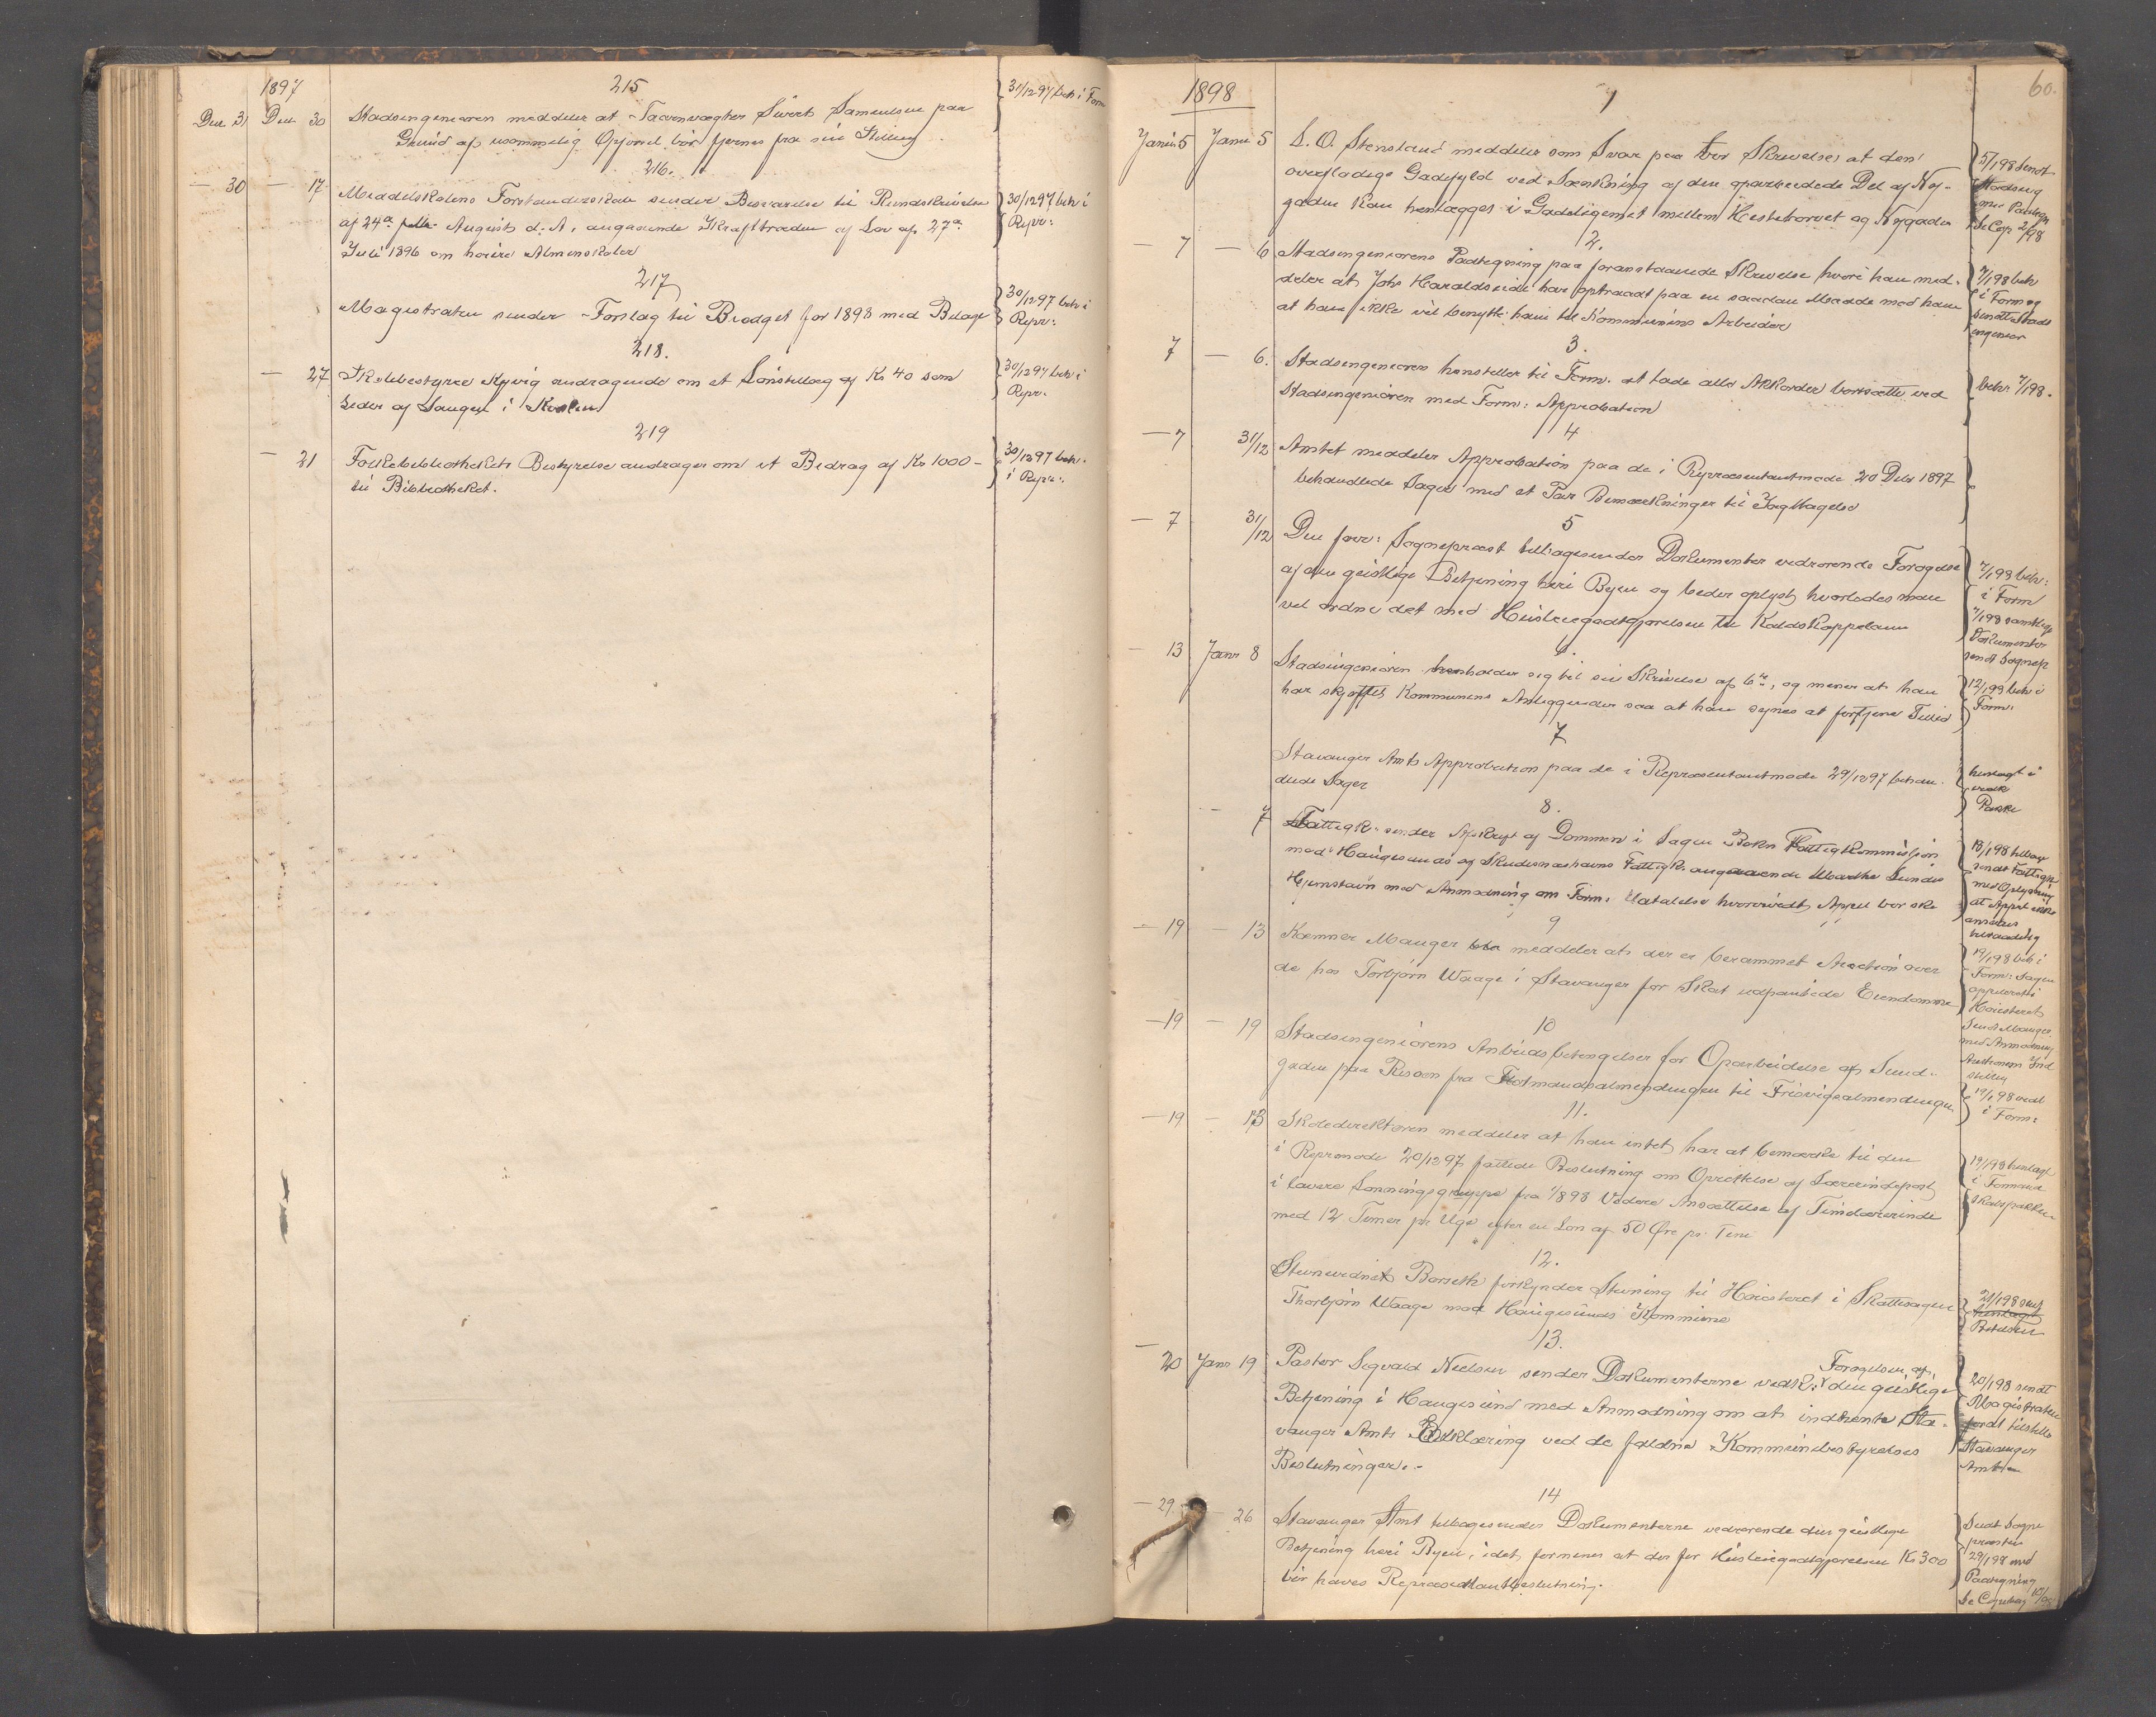 1897
215
Dec 31 Dec 30 Stadsingeniøren meddeler at Taarnvægter Sivert Samuelsen paa
Grund af usømmelig Opførsel bør fjernes fra sin Stilling.
31/12 97 beh i Form
216.
— 30 — 17 Middelskolens Forstanderskab sender Besvarelse til Rundskrivelse
af 24de August d. A. angaaende Ikrafttræden af Lov af 27de
Juli 1896 om høiere Almenskoler
30/12 97 beh i
Repr:
217
Magistraten sender Forslag til Budget for 1898 med Bilage
30/12 97 beh i
Repr:
218.
— 27 Skolebestyrer andragende om et Lønstillæg af Kr 40 som
Leder af Sangen i Skolen
30/12 97 beh i
Repr.
219
— 21 Folkebibliothekets Bestyrelse andrager om et Bidrag af Kr 1000 —
til Bibliotheket.
30/12 97 beh.
i Repr:
60.
1898
1
Janu 5 Janu 5 S. O. Stensland meddeler som Svar paa Skrivelse at den
overflødige Gadefyld ved Sænkning af den oparbeidede Del af Ny-
gaden kan henlægges i Gadelegemet mellem Hestetorvet og Nygaden
5/1 98 sendt
Stadsing
med Paategn
Se Cop 2/98
2.
— 7 — 6 Stadsingeniørens Paategning paa foranstaaende Skrivelse hvori han med-
deler at Johs Haraldseide har optraadt paa en saadan Maade mod ham
at han ikke vil benytte ham til Kommunens Arbeider
7/1 98 beh
i Form og
sendt Stads
ingeniør
3.
7 — 6. Stadsingeniøren henstiller til Form. at lade alle Akkorder bortsætte ved
Stadsingeniøren med Form: Approbation
beh: 7/1 98.
4
— 7 31/12 Amtet meddeler Approbation paa de i Repræsentantmøde 20 Decbr 1897
behandlede Sager med et Par Bemærkninger til Iagttagelse
5
— 7 31/12 Den Sogneprest tilbagesender Dokumenter vedrørende Forøgelse
af den geistlige Betjening heri Byen og beder oplyst hvorledes man
vil ordne det med Husleiegodtgjørelsen til Kaldskappelanen
7/1 98 beh:
i Form
7/1 98 samtlige
Dokumenter
sendt Sognep
— 13 Janr 8 Stadsingeniøren henholder sig til sin Skrivelse af 6te, og mener at han
har skjøttet Kommunens Anliggender saa at han synes at fortjene Tillid
12/1 98 beh i
Form:
7
Stavanger Amts Approbation paa de i Repræsentantmøde 29/12 97 behan-
dlede Sager
henlagt i
Pakke
8.
— 7 Fattigk: sender Afskrift af Dommen i Sagen Bokn Fattigkommission
mod Haugesunds og Skudesnæshavns Fattigk: angaaende Sundes
Hjemstavn med Anmodning om Form: Udtalelse hvorvidt Appel bør ske
18/1 98 tilbage
sendt Fattigk
med Oplysning
at Appel ikke
ansees
tilraadelig
9
— 19 — 13 Kæmner Mauger meddeler at der er berammet Auction over
de hos Torbjørn Waage i Stavanger for Skat udpantede Eiendomme
19/1 98 beh i
Form: Sagen
appelleres til
Høiesteret
Sendt Mauger
med Anmodning
Auctionen Ind
stilles
10
— 19 — 19 Stadsingeniørens Anbudsbetingelser for Oparbeidelse af Sund-
gaden paa Risøen fra Flotmandsalmendingen til Frisvigealmendingen
19/1 98 vedt
i Form:
11.
— 19 — 13 Skoledirektøren meddeler at han intet har at bemærke til den
i Reprmøde 20/12 97 fattede Beslutning om Oprettelse af Lærerindepost
i lavere Lønningsgruppe fra 1/8 98 Videre Ansættelse af Timelærerinde
med 12 Timer pr Uge efter en Løn af 50 Øre pr. Time
19/1 98 henlagt
i Formand
skabspakken
12.
Stevnevidnet Borseth forkynder Stevning til Høiesteret i Skattesagen
Thorbjørn Waage mod Haugesunds Kommune
21/1 98
henlagt
13.
— 20 Janr 19 Pastor Sigvald Nielsen sender Dokumenterne vedk: Forøgelsen af den geistlige
Betjening i Haugesund med Anmodning om at indhente Sta-
vanger Amts Erklæring ved de faldne Kommunebestyrelses
Beslutninger. —
20/1 98 sendt
Magistraten
fordt tilstille
Stavanger
Amt
14
— 29. — 26 Stavanger Amt tilbagesender Dokumenterne vedrørende den geistlige
Betjening heri Byen, idet formenes at der for Husleiegodtgjørelsen Kr 300
bør haves Repræsentantbeslutning.
Sendt Sogne
presten
29/1 98 med
Paategning
Se Copibog